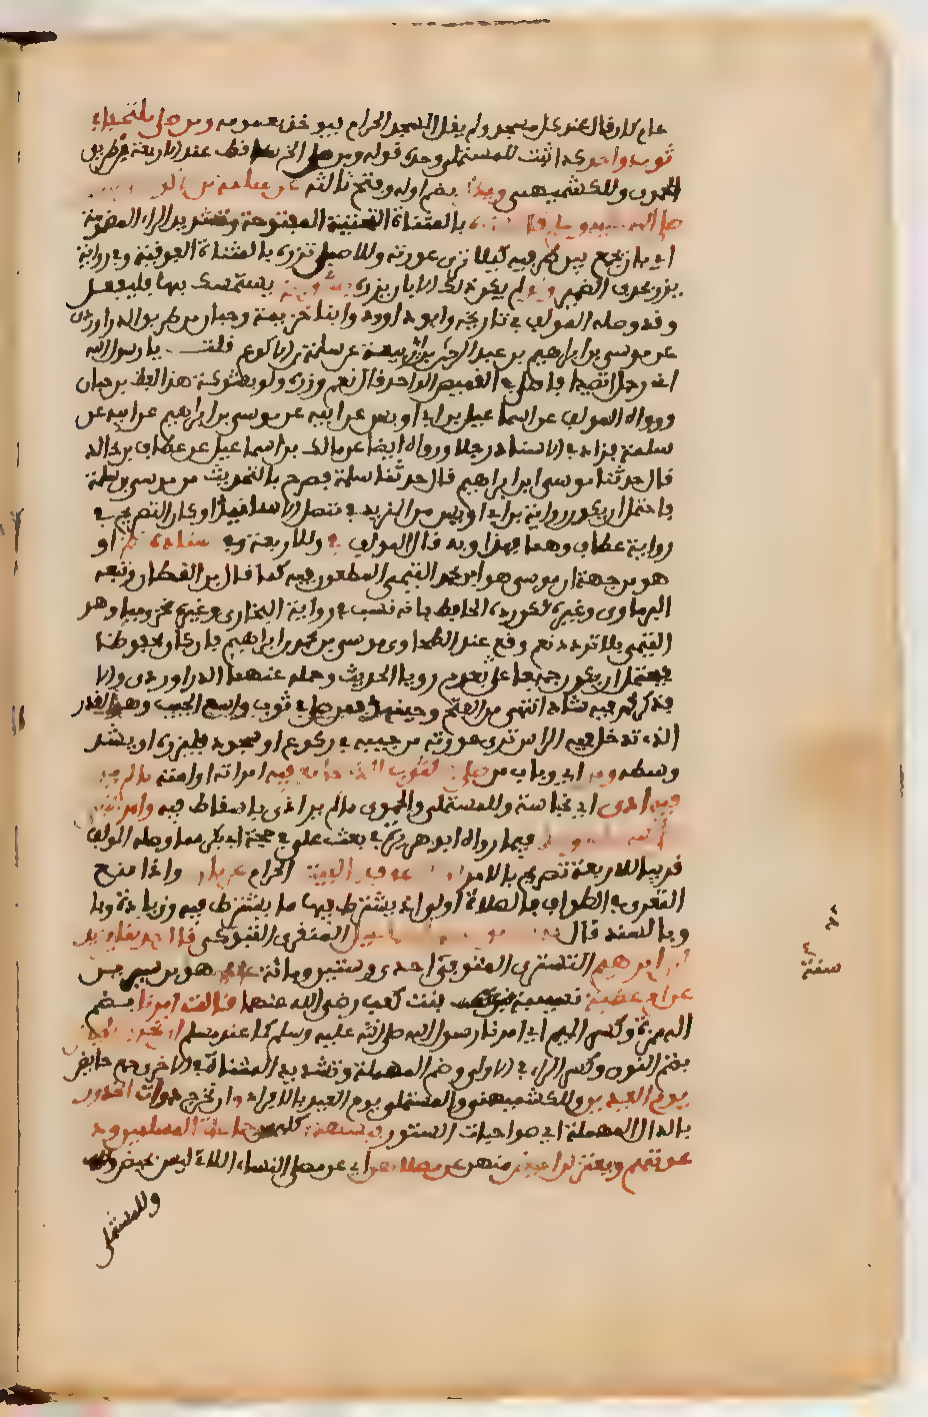 عام كذا وقال عند كل مسجد ولم يقل المسجد الحرام فيؤخذ بعمومه ومن صلى ملتحفا في
ثوب واحد كذا ثبت للمستملي وحده قوله ومن صلى الخ ساقط عند الاربعة من طريق
الحموي وللكشميهني ويذكر بضم اوله وفتح ثالثه عن سلمة بن الاكوع
صلى الله عليه وسلم قال يزره بالمثناة التحتية المفتوحة وتشديد الراء المضمومة
اي بان يجمع بين طرفيه كيلا ترى عورته وللاصيلي تزره بالمثناة الفوقية وفي رواية
يزر بحذف الضمير ولو لم يكن ذلك الا بان يزره بشوكة يستمسك بها فليفعل
وقد وصله المؤلف في تاريخه وابو داوود وابنا خزيمة وحبان من طريق الدراوردي
عن موسى بن ابراهيم بن عبد الرحمن بن ابي ربيعة عن سلمة بن الاكوع قلت يا رسول الله
اني رجل اتصيد افاصلي في القميص الواحد قال نعم وزره ولو بشوكة هذا لفظ ابن حبان
ورواه المؤلف عن اسماعيل بن ابي اويس عن ابيه عن موسى بن ابراهيم عن ابيه عن
سلمة فزاد في الاسناد رجلا ورواه ايضا عن مالك بن اسماعيل عن عطاف بن خالد
قال حدثنا موسى ابن ابراهيم قال حدثنا سلمة فصرح بالتحديث من موسى بن سلمة
فاحتمل ان يكون رواية بن ابي اويس من المزيد في متصل الاسانيد او كان التصريح في
رواية عطاف وهما فهذا وجه قال المولف في وللاربعة وفي اسناده نظر او
هو من جهة ان موسى هو ابن محمد التيمي المطعون فيه كما قال بن القطان وتبعه
البرماوي وغيره لكن رده الحافظ بانه نسب في رواية البخاري وغيره مخزوميا وهو
التيمي بلا تردد نعم وقع عند الطحاوي موسى بن محمد بن ابراهيم فان كان محفوظا
فيحتمل ان يكون جميعا على بعد رويا الحديث وحمله عنهما الدراوردي والا
فذكر محمد فيه شاذ انتهى من الفتح وحينئذ فمن صلى في ثوب واسع الجيب وهو القدر
الذي تدخل فيه الراس ترى عورته من جيبه في ركوع او سجود فليزره او يشد
وسطه وفيه اي وباب من صلى في الثوب الذي يجامع فيه امراته او امته ما لم ير
فيه اذى اي نجاسة وللمستملي والحموي ما لم ير اذى باسقاط فيه وامر النبي
صلى الله عليه وسلم فيما رواه ابو هريرة في بعث علي في حجة ابي بكر مما وصله المولف
قريبا للاربعة تصريح بالامر ان لا يطوف بالبيت الحرام عريان واذا منع
التعري في الطواف فالصلاة اولى اذ يشترط فيها ما يشترط فيه وزيادة وبه
وبالسند قال حدثنا موسى بن اسماعيل المنقري التبوذكي قال حدثنا يزيد
بن ابراهيم التستري المتوفى احدى وستين ومائة عن محمد هو بن سيرين
عن ام عطية نسيبة بنت كعب رضي الله عنها قالت امرنا بضم
الهمزة وكسر الميم اي امرنا رسول الله صلى الله عليه وسلم كما عند مسلم ان نخرج الحيض
بضم النون وكسر الراء في الاولى وضم المهملة وتشديد المثناة في الاخرى جمع حائض
يوم العيدين وللكشميهني والمستملي يوم العيد بالافراد وان نخرج ذوات الخدور
بالدال المهملة اي صواحبات الستور فيشهدن كلهن جماعة المسلمين ود
عوتهم ويعتزل الحيض منهن عن مصلاهن اي عن مصلى النساء اللاتي ليس بحيض
وللمستملي
سنة